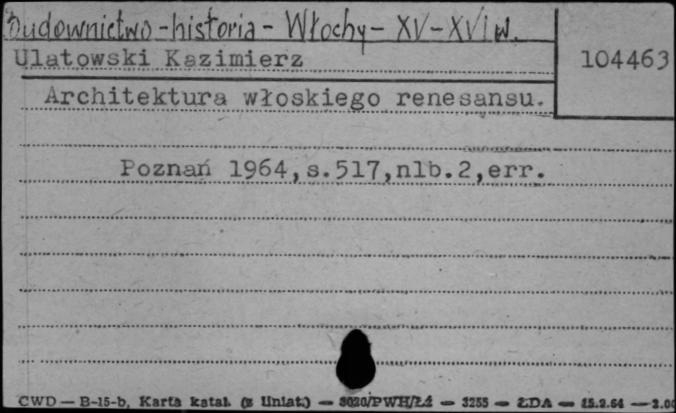 Budownictwo - historia - Włochy - XV - XVI w.
Ulatowski Kazimierz
104463
Architektura włoskiego renesansu.
Poznań 1964,s.517,nlb.2,err.
CWD — B-15-b, Karta katal. (z Uniat.) — 3020/PWH/Łź — 3255 — ŁDA — 15.2.64 —